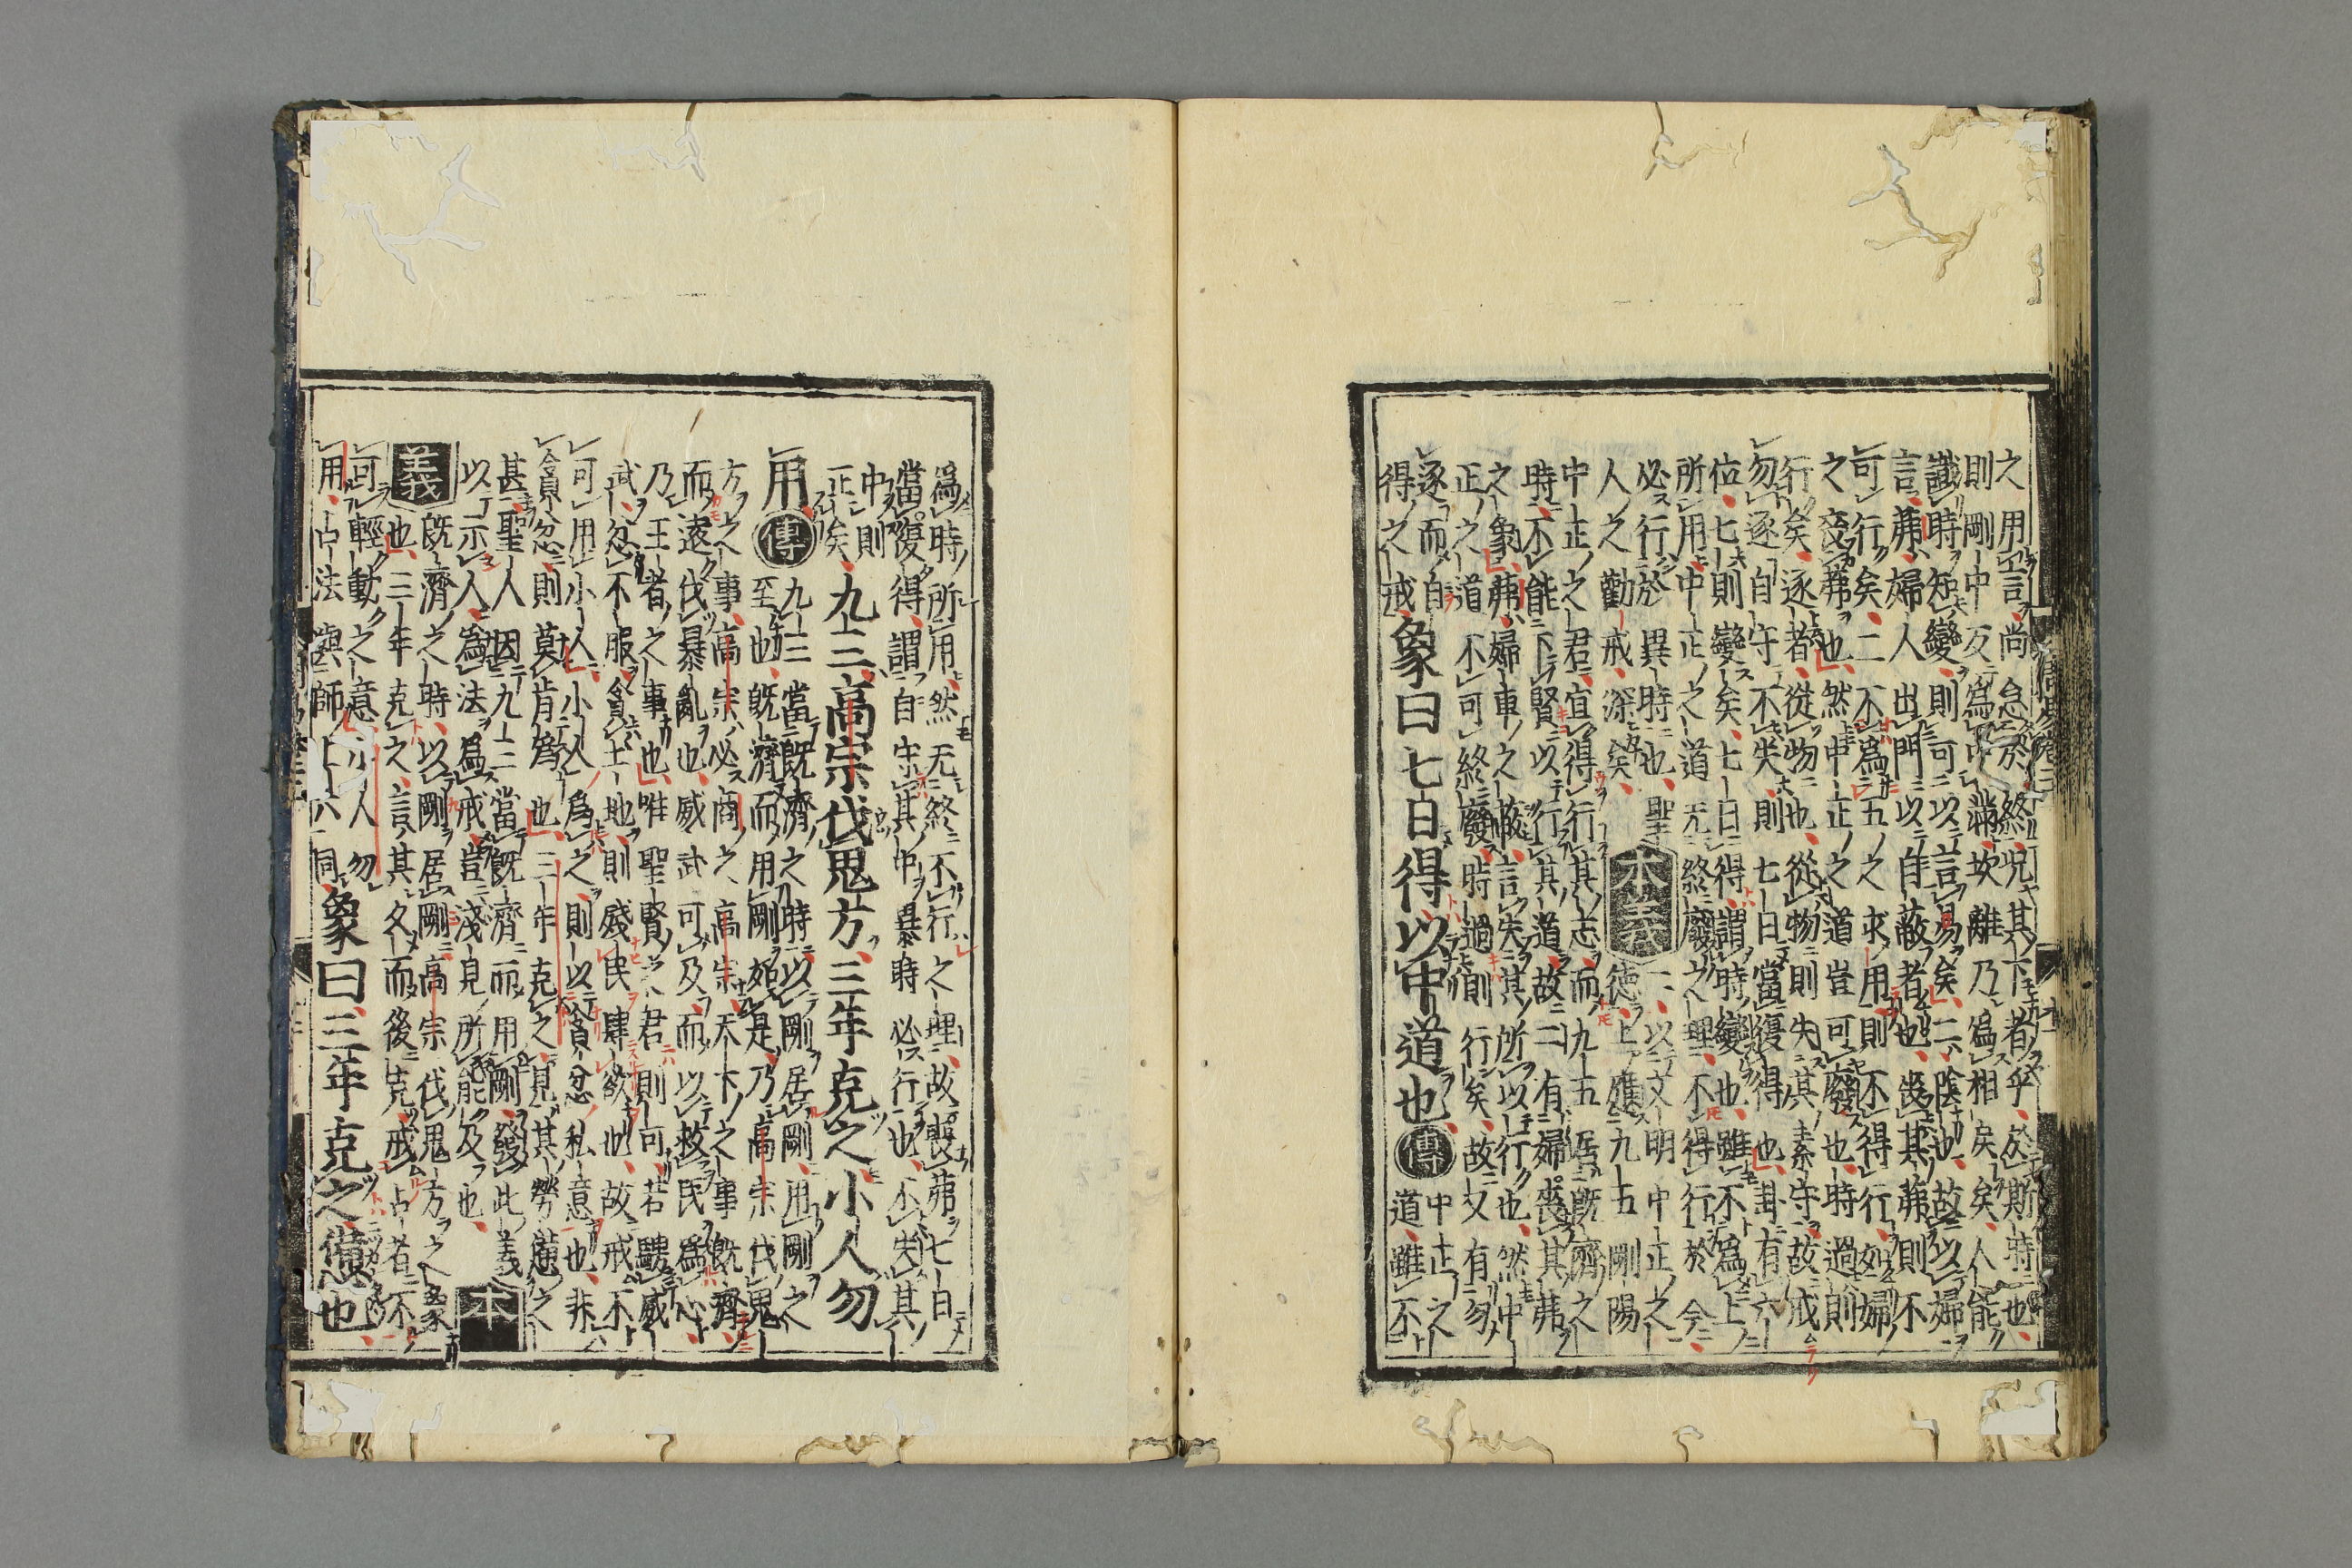 之用言尚怠於終況其下者乎於斯時也
則剛中反為中滿坎離乃為相戾矣人能
識時知變則可以言易矣二陰也故以婦
言茀婦人出門以自蔽者也喪其茀則不
可行矣二不為五之求用則不得行如婦
之喪茀也然中正之道豈可廢也時過則
行矣逐者從物也從物則失其素守故戒
勿逐自守不失則七日當復得也卦有六
位七則變矣七日得謂時變也雖不為上
所用中正之道无終廢之理不得行於今
必行於異時也聖
人之勸戒深矣
本義
二以文明中正之
德上應九五剛陽
中正之君宜得行其志而九五居既濟之
時不能下賢以行其道故二有婦喪其茀
之象茀婦車之蔽言失其所以行也然中
正之道不可終廢時過則行矣故又有勿
逐而自
得之戒
象曰七日得以中道也
傳
中正之
道雖不
為時所用然无終不行之理故喪茀七日
當復得謂自守其中異時必行也不失其
中則
正矣
九三高宗伐鬼方三年克之小人勿
用
傳
九三當既濟之時以剛居剛用剛之
至也既濟而用剛如是乃高宗伐鬼
方之事高宗必商之高宗天下之事既濟
而遠伐暴亂也威武可及而以救民為心
乃王者之事也唯聖賢之君則可若騁威
武忿不服貪土地則殘民肆欲也故戒不
可用小人小人為之則以貪忿私意也非
貪忿則莫肯為也三年克之見其勞憊之
甚聖人因九三當既濟而用剛發此義
以示人為法為戒豈淺見所能及也
本
義
既濟之時以剛居剛高宗伐鬼方之象
也三年克之言其久而後克戒占者不
可輕動之意小人勿
用占法與師上六同
象曰三年克之憊也